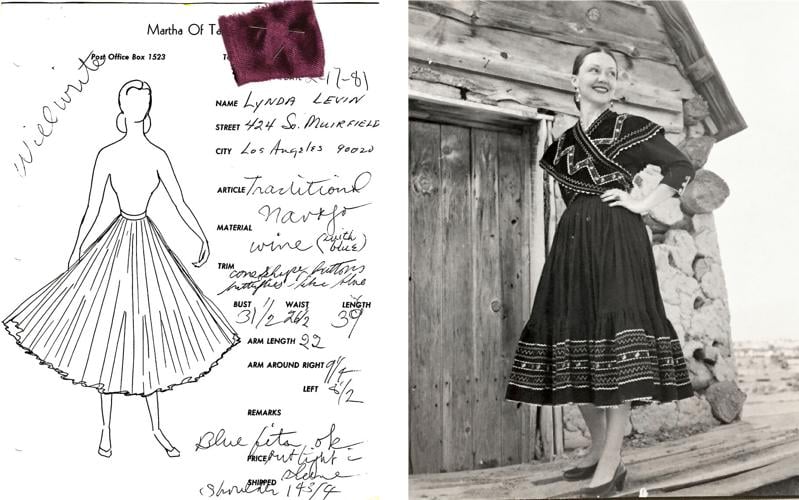 Martha Of Ta
Post Office Box 1523
Will write
2-17-81
NAME LYNDA LEVIN
STREET 424 So. MUIRFIELD
CITY Los Angeles 90020
ARTICLE Traditional
Navajo
MATERIAL
wine (with blue)
TRIM cone shape buttons
butterflies like blue
BUST WAIST LENGTH
31 1/2 26 1/2
ARM LENGTH 22
ARM AROUND RIGHT 9 1/4
LEFT 8 1/2
REMARKS
Blue fits ok
PRICE but tight in
SHIPPED sleeve
Shoulder 14 3/4